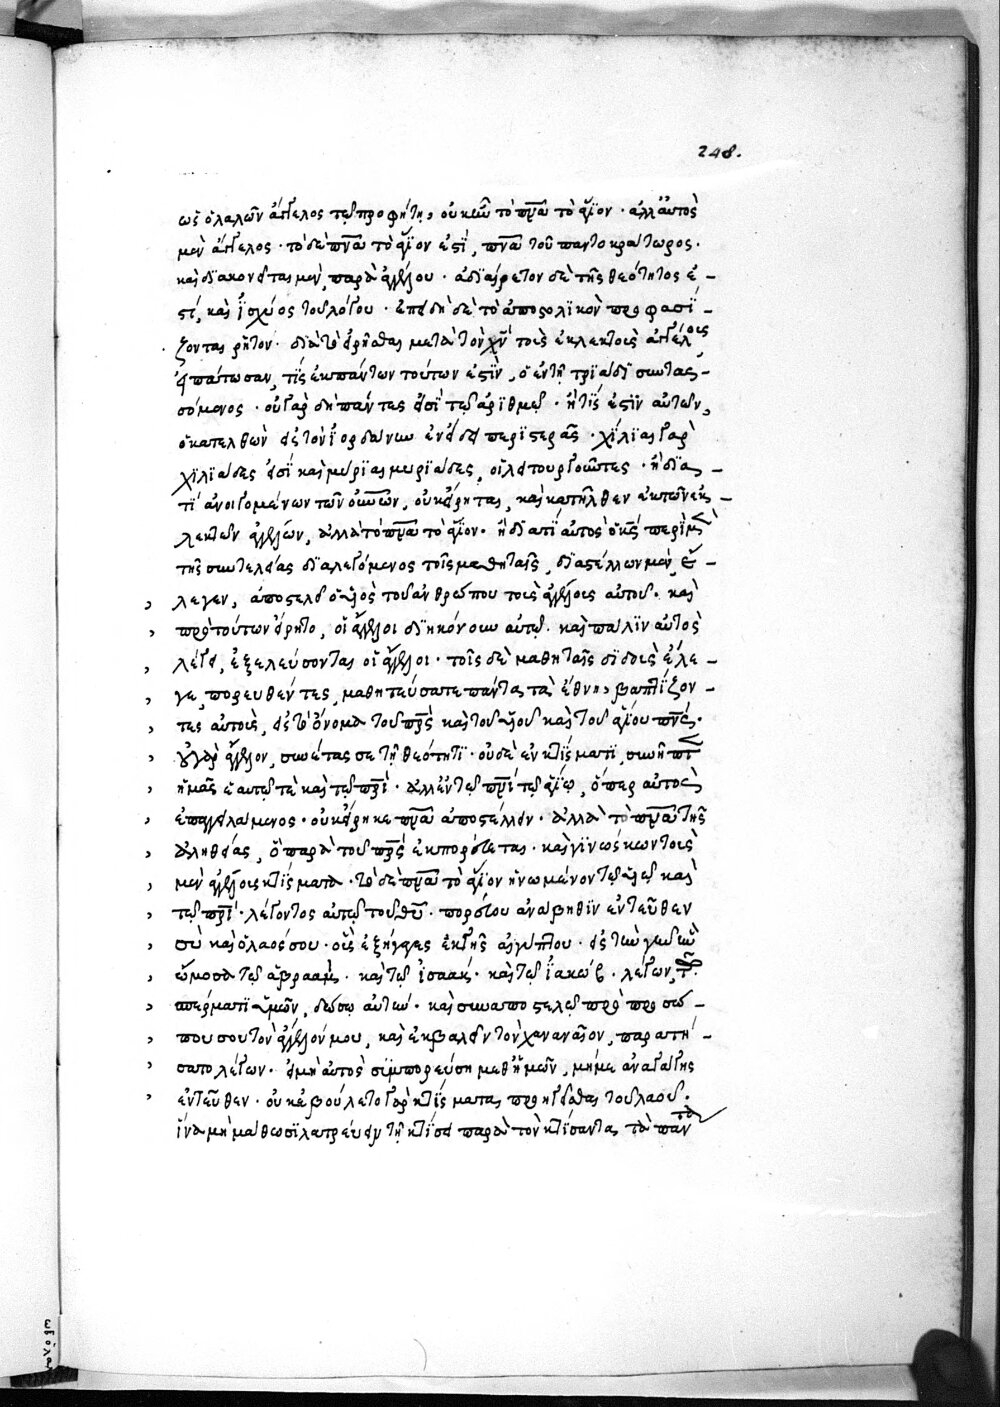 248.
ὡς ὁ λαλῶν ἄγγελος τῷ προφήτη, οὐκ ἦν τὸ πνα τὸ ἅγιον · ἀλλ αὐτὸς
μὲν ἄγγελος · τὸ δὲ πνα τὸ ἅγιον ἐστὶ, πνα τοῦ παντοκράτωρος ·
καὶ διακονεῖται μὲν, παρὰ ἀγγέλου · ἀδιαίρετον δὲ τῆς θεότητος ἐ-
στί, καὶ ἰσχύος τοῦ λόγου · ἐπειδὴ δὲ τὸ ἀποστολικὸν προφασί-
ζονται ρητὸν · διὰ τὸ εἰρῆσθαι μετὰ τὸν χν τοῖς ἐκλεκτοῖς ἀγγέλοις
εἰπάτωσαν, τίς ἐκ πάντων τούτων ἐστὶν, ὁ ἐν τῆ τριάδι συντασ-
σόμενος · οὐ γὰρ δὴ πάντες εἰσὶ τῷ ἀριθμῷ · ἢ τίς ἐστὶν αὐτῶν,
ὁ κατελθὼν εἰς τὸν ἰορδάνην ἐν εἴδει περιστερᾶς · χίλιαι γὰρ
χιλιάδες εἰσὶ καὶ μυρίαι μυριάδες, οἱ λειτουργοῦντες · ἢ δια-
τί ἀνοιγομένων τῶν οὐνων, οὐκ εἴρηται, καὶ κατῆλθεν ἐκ τῶν ἐκ-
λεκτῶν ἀγγέλων, ἀλλὰ τὸ πνα τὸ ἅγιον · ἢ διατί αὐτὸς ὁ κς περὶ μὲν
τῆς συντελείας διαλεγόμενος τοῖς μαθηταῖς, διαστέλλων μὲν, ἔ-
λεγεν, ἀποστελεῖ ὁ υἱὸς τοῦ ἀνθρώπου τοὺς ἀγγέλους αὐτοῦ · καὶ
πρὸ τούτων εἴρητο, οἱ ἄγγελοι διηκόνουν αὐτῷ · καὶ πάλιν αὐτὸς
λέγει, ἐξελεύσονται οἱ ἄγγελοι · τοῖς δὲ μαθηταῖς διδοὺς ἔλε-
γε, πορευθέντες, μαθητεύσατε πάντα τὰ ἔθνη, βαπτίζον-
τες αὐτοὺς, εἰς τὸ ὄνομα τοῦ πρς καὶ τοῦ υἱοῦ καὶ τοῦ ἁγίου πνς ·
οὐ γὰρ ἄγγελον, συνέταξε τῆ θεότητι · οὐδὲ ἐν κτίσματι, συνῆπτε
ἡμᾶς ἑαυτῷ τὲ καὶ τῷ πρὶ · ἀλλ ἐν τῷ πνὶ τῷ ἁγίῳ, ὅπερ αὐτὸς
ἐπαγγειλάμενος · οὐκ εἴρηκε πνα ἀποστέλλειν · ἀλλὰ τὸ πνα τῆς
ἀληθείας, ὃ παρὰ τοῦ πρς ἐκπορεύεται · καὶ γινώσκων τοὺς
μὲν ἀγγέλους κτίσματα · τὸ δὲ πνα τὸ ἅγιον ἡνωμένον τῷ υἱῷ καὶ
τῷ πρὶ · λέγοντος αὐτῷ τοῦ θυ · πορεύου ἀνάβηθιν ἐντεῦθεν
σὺ καὶ ὁ λαός σου · οὓς ἐξήγαγες ἐκ γῆς αἰγύπτου · εἰς τὴν γῆν ἣν
ὤμοσα τῷ ἀβραὰμ · καὶ τῷ ἰσαὰκ · καὶ τῷ ἰακώβ · λέγων, τῷ
σπέρματι ὑμῶν, δώσω αὐτὴν · καὶ συναποστελῶ πρὸ προσώ-
που σου τὸν ἄγγελόν μου, καὶ ἐκβαλεῖ τὸν χαναναῖον, παρητή-
σατο λέγων · εἰ μὴ αὐτὸς συμπορεύση μεθ ἡμῶν, μή με ἀναγάγης
ἐντεῦθεν · οὐκ ἐβούλετο γὰρ κτίσμα προηγεῖσθαι τοῦ λαοῦ ·
ἵνα μὴ μάθωσι λατρεύειν τῆ κτίσει παρὰ τὸν κτίσαντα τὰ πάντα